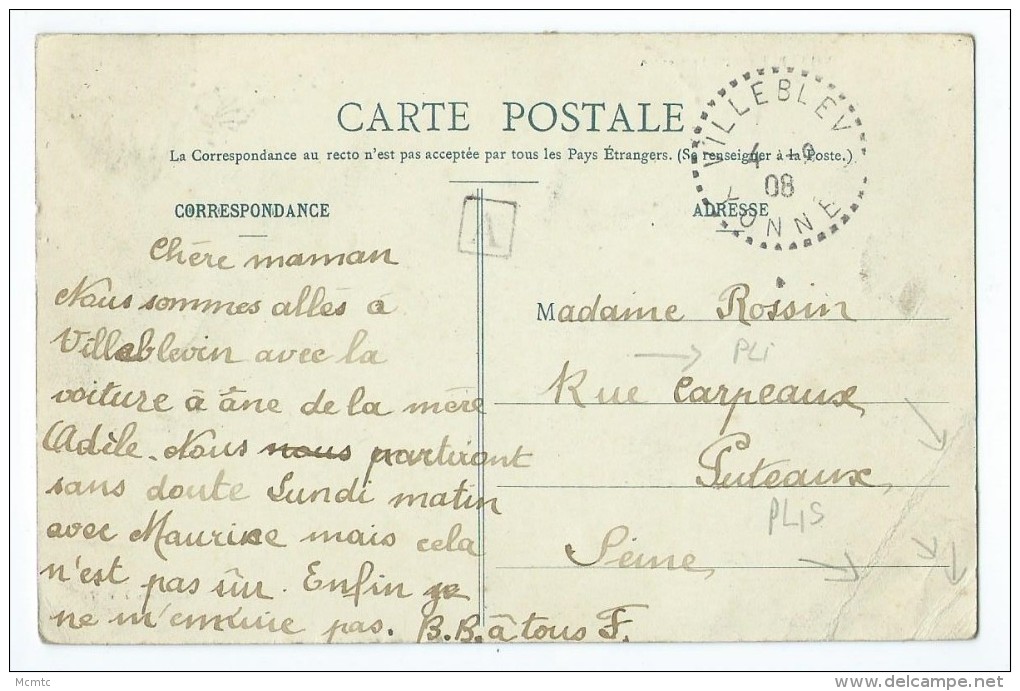 CARTE POSTALE
La Correspondance au recto n'est pas acceptée par tous les Pays Étrangers. (Se renseigner à la Poste.)
VILLEBLEV
4 - 9
08
YONNE
CORRESPONDANCE
A
ADRESSE
Chère maman
Nous sommes allés à
Villeblevin avec la
voiture à âne de la mère
Adèle. Nous nous partiront
sans doute Lundi matin
avec Maurice mais cela
n'est pas sûr. Enfin je
ne m'ennuie pas. B.B. à tous F.
Madame Rossin
PLi
Rue Carpeaux
Puteaux
PLiS
Seine
Mcmtc
delcampe.net